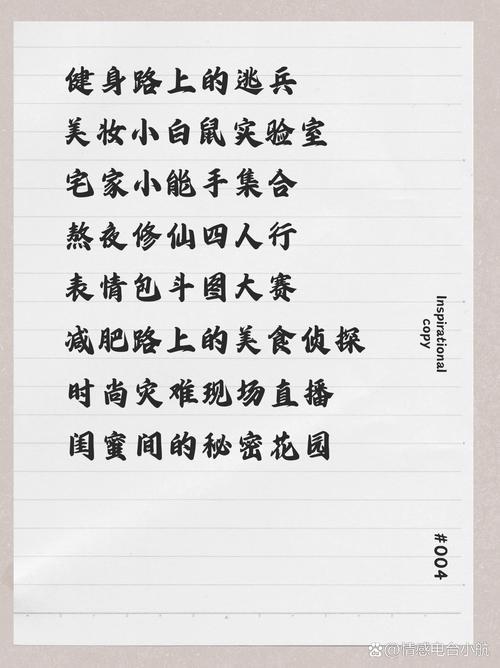 健身路上的逃兵
美妆小白鼠实验室
宅家小能手集合
熬夜修仙四人行
表情包斗图大赛
减肥路上的美食侦探
时尚灾难现场直播
闺蜜间的秘密花园
Inspirational
copy
#004
情感电台小航